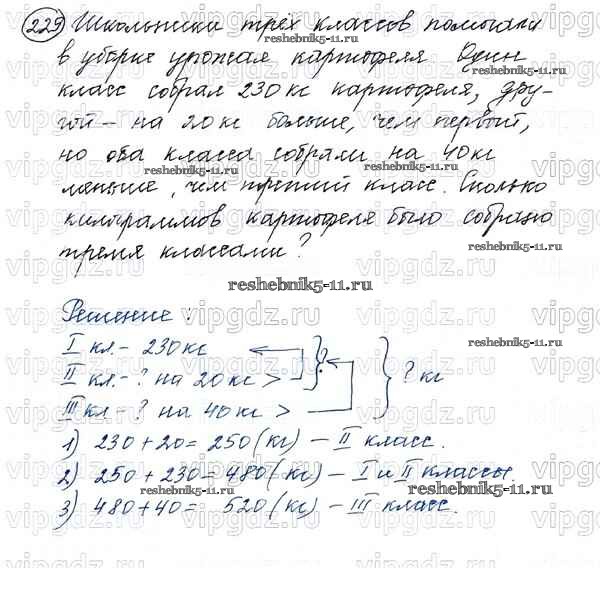 229 Школьники трех классов помогали
в уборке урожая картофеля. Один
класс собрал 230 кг картофеля, дру-
гой - на 20 кг больше, чем первый,
но оба класса собрали на 40 кг
меньше, чем третий класс. Сколько
килограммов картофеля было собрано
тремя классами?
reshebnik5-11.ru
Решение:
I кл. - 230 кг
II кл - ? на 20 кг > ? ? кг
III кл - ? на 40 кг >
1) 230 + 20 = 250 (кг) - II класс.
2) 250 + 230 = 480 (кг) - I и II классы.
3) 480 + 40 = 520 (кг) - III класс.
vipgdz.ru